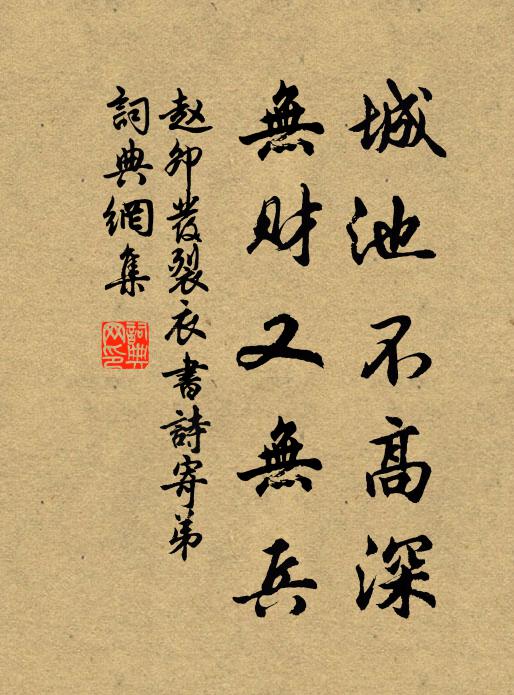 城池不高深
無財又無兵
赵卯發裂衣書詩寄弟
詞典網集
詞典网印